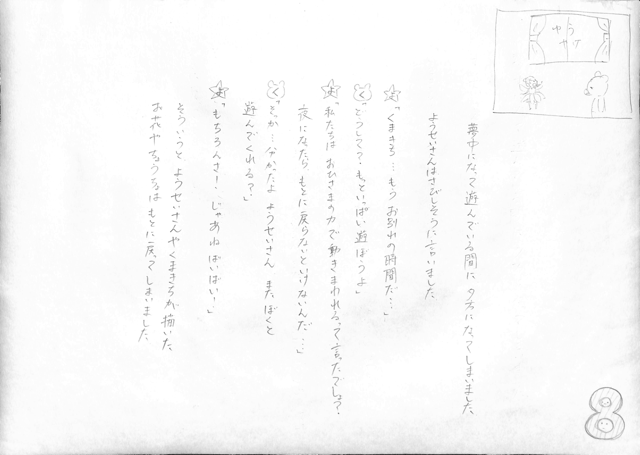 夢中になって遊んでいる間に 夕方になってしまいました
ようせいさんはさびしそうに言いました
よ「くまきち…もうお別れの時間だ…」
く「どうして?もっといっぱい遊ぼうよ」
よ「私たちは おひさまの力で動きまわれるって言ったでしょ?
夜になったら もとに戻らないといけないんだ…」
く「そっか…分かったよ ようせいさん またぼくと
遊んでくれる?」
よ「もちろんさ!じゃあね ばいばい!」
そういうと ようせいさんや くまきちが 描いた
お花や ちょうちょは もとに戻ってしまいました
8